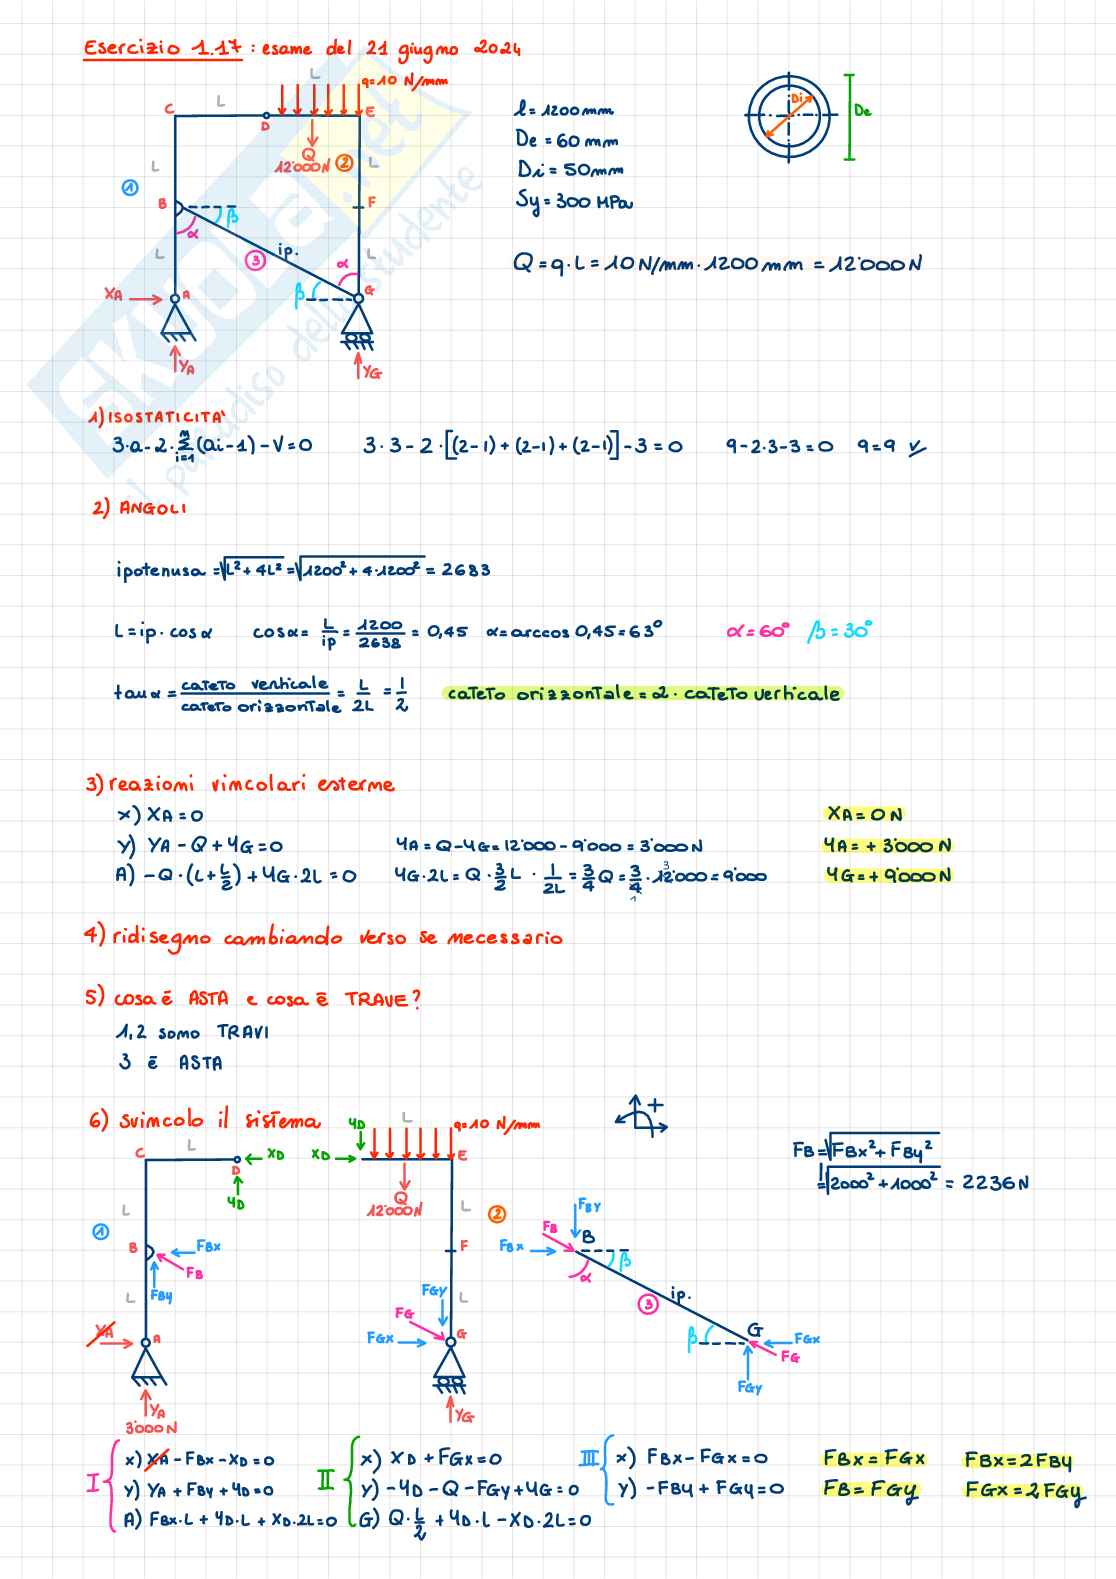 Esercizio 1.17 : esame del 21 giugno 2024
L q=10 N/mm
C L D E
Q
12'000N ②
L L
① B β F
α
L ③ ip. α L
XA A β G
YA YG
l = 1200 mm
De = 60 mm
Di = 50 mm
Sy = 300 MPa
Q = q·L = 10 N/mm · 1200 mm = 12'000 N
Di De
SKUOLA.net
il paradiso dello studente
1) ISOSTATICITA'
3·a - 2·Σ(ai-1) - V = 0 3·3 - 2·[(2-1)+(2-1)+(2-1)] - 3 = 0 9-2·3-3=0 9=9 ✓
m
i=1
2) ANGOLI
ipotenusa = √L²+4L² = √1200²+4·1200² = 2683
L = ip·cosα cosα = L/ip = 1200/2638 = 0,45 α = arccos 0,45 = 63° α = 60° β = 30°
tauα = cateto verticale/cateto orizzontale = L/2L = 1/2 cateto orizzontale = 2 · cateto verticale
3) reazioni vincolari esterne
x) XA = 0 XA = 0 N
y) YA - Q + YG = 0 YA = Q-YG = 12'000 - 9'000 = 3'000 N YA = + 3'000 N
A) -Q·(L+L/2) + YG·2L = 0 YG·2L = Q·3/2 L · 1/2L = 3/4 Q = 3/4 · 12'000 = 9'000 YG = + 9'000 N
3
1
4) ridisegno cambiando verso se necessario
5) cosa è ASTA e cosa è TRAVE?
1,2 sono TRAVI
3 è ASTA
6) svincolo il sistema
C L D XD
YD
L
① B FBx
FB
FBy
L
XA A
YA
3'000 N
YD L q=10 N/mm
XD E
Q
12'000N L ②
F
FGy L
FG
FGx G
YG
+
FBy
FB B
FBx β
α
③ ip.
β G FGx
FG
FGy
FB = √FBx² + FBy²
= √2000² + 1000² = 2236 N
I
x) XA - FBx - XD = 0
y) YA + FBy + YD = 0
A) FBx·L + YD·L + XD·2L = 0
II
x) XD + FGx = 0
y) -YD - Q - FGy + YG = 0
G) Q·L/2 + YD·L - XD·2L = 0
III
x) FBx - FGx = 0
y) -FBy + FGy = 0
FBx = FGx FBx = 2FBy
FB = FGy FGx = 2FGy